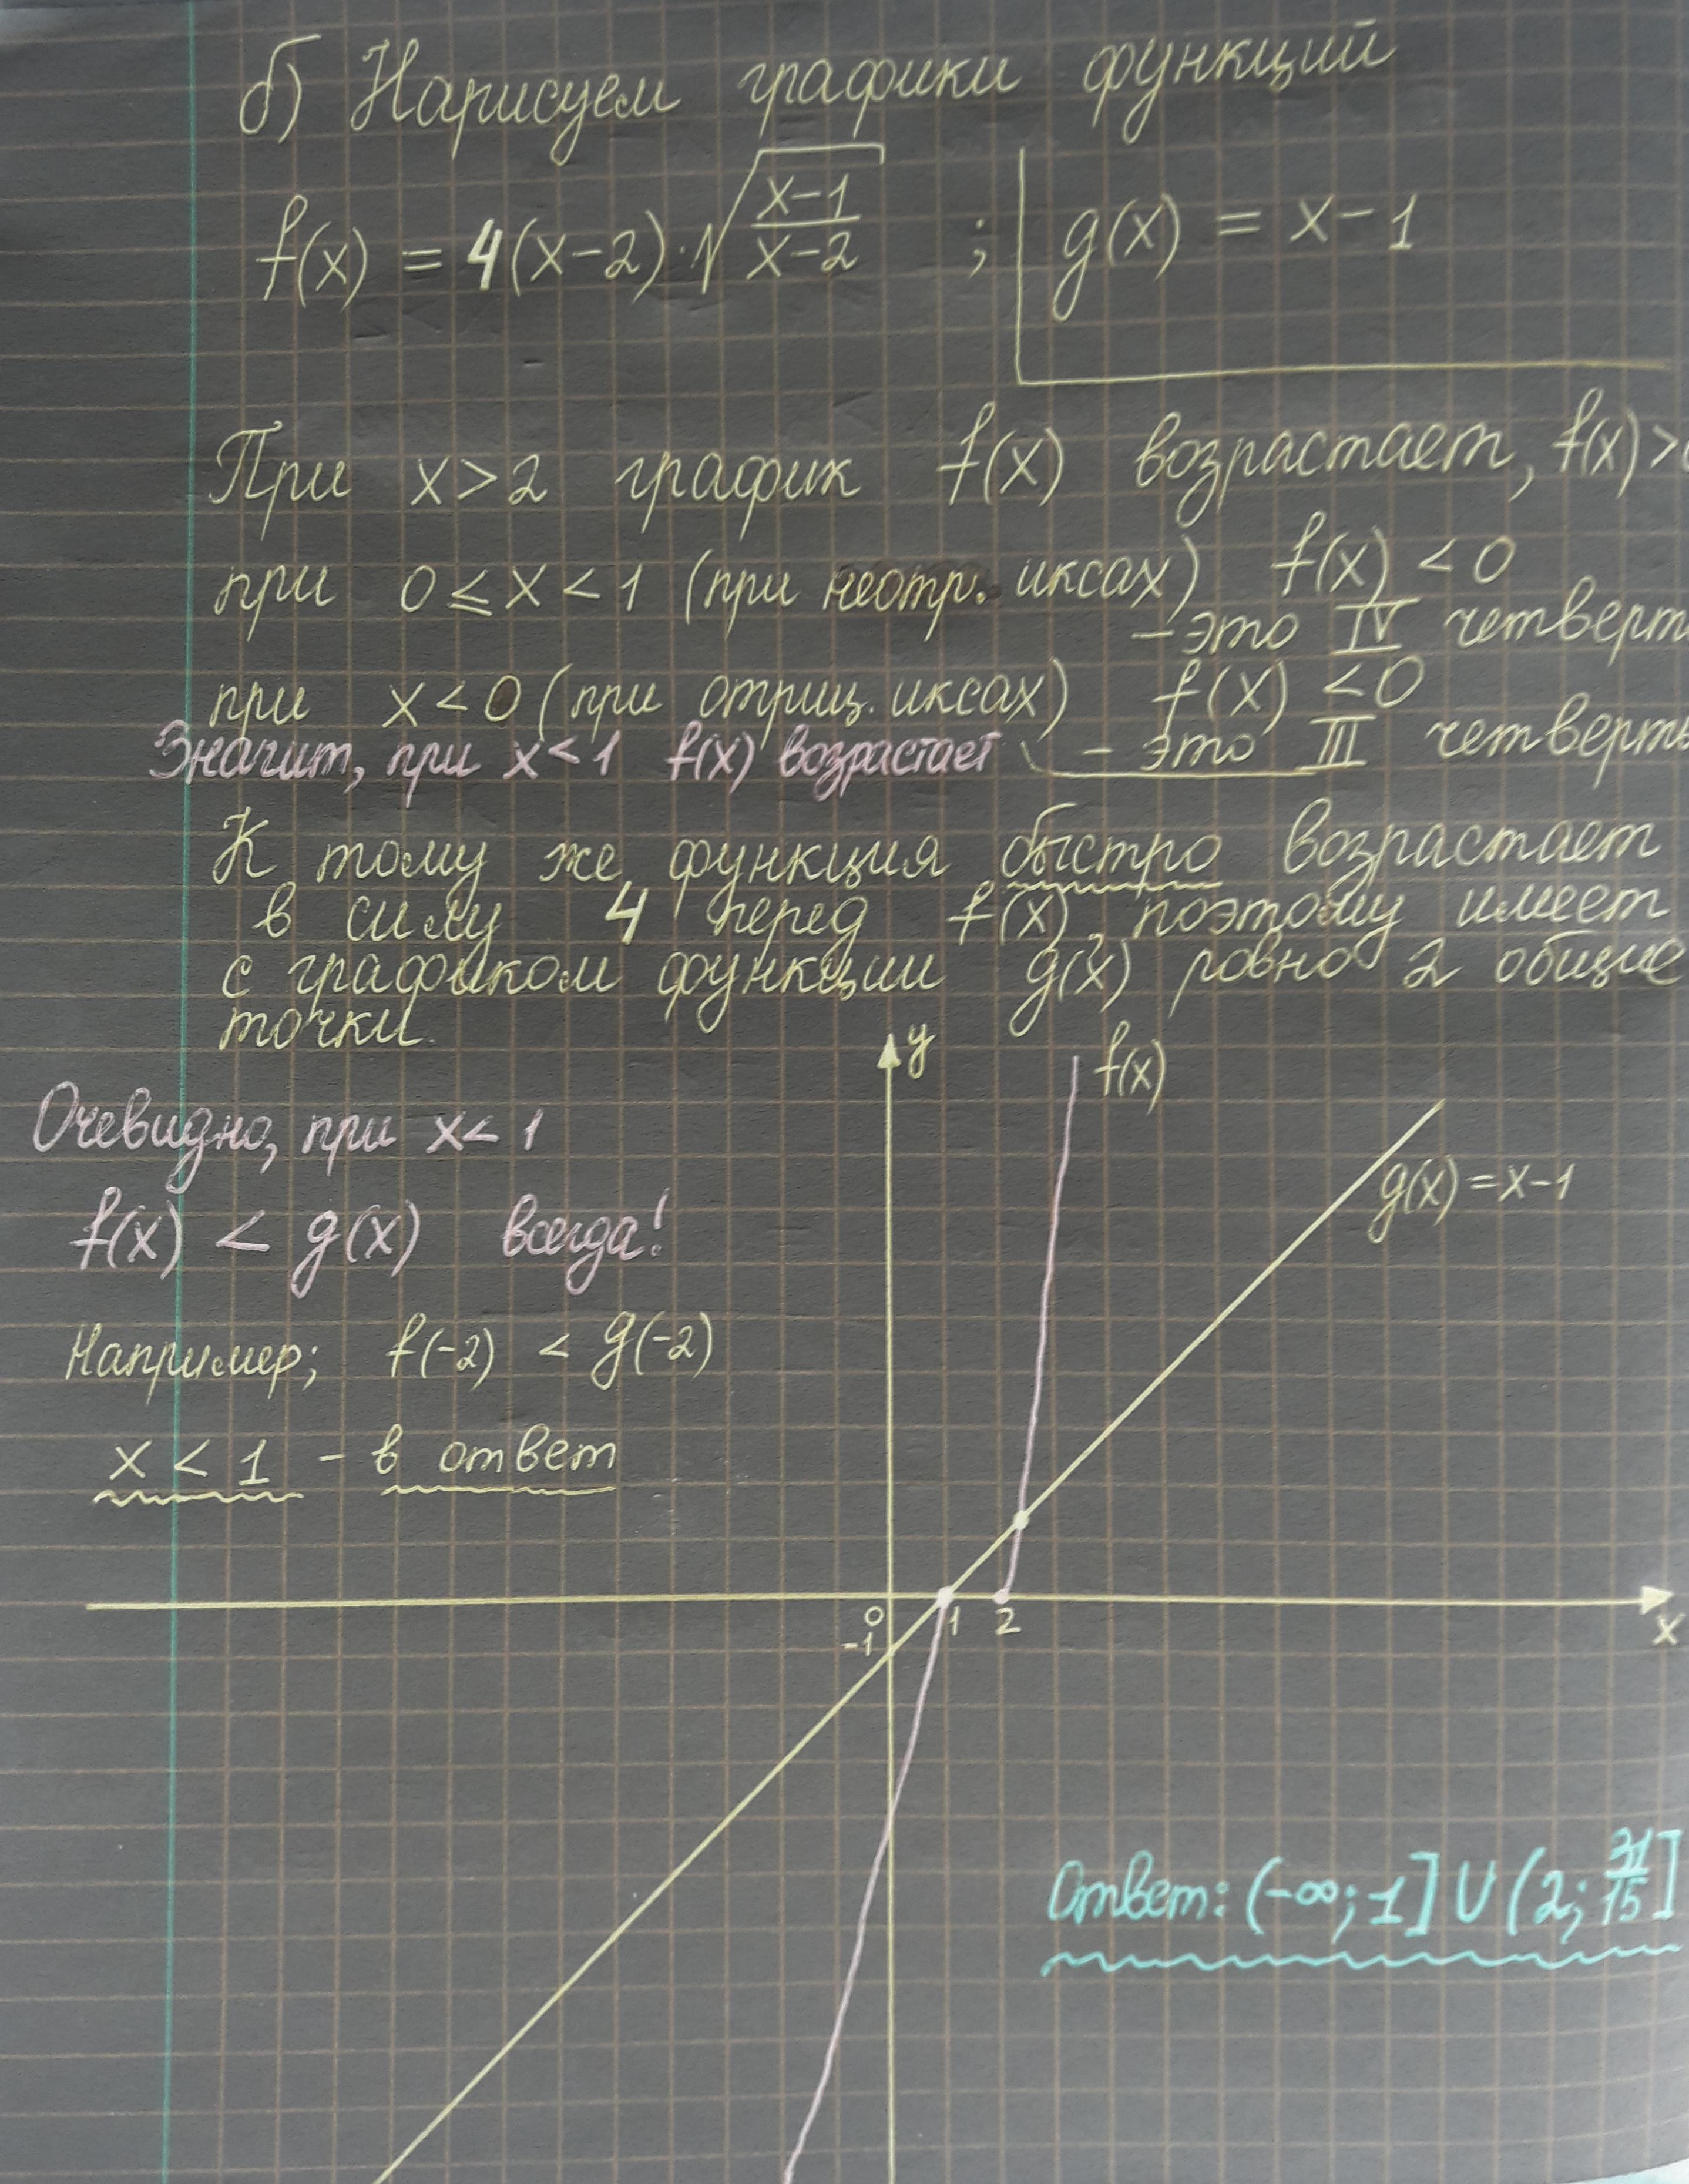 б) Нарисуем графики функций
f(x) = 4(x-2)·√((x-1)/(x-2)) ; g(x) = x-1
При x>2 график f(x) возрастает, f(x)>
при 0 ≤ x < 1 (при неотр. иксах) f(x) < 0
- это IV четверт
при x < 0 (при отриц. иксах) f(x) < 0
- это III четверть
Значит, при x<1 f(x) возрастает
К тому же функция быстро возрастает
в силу 4 перед f(x), поэтому имеет
с графиком функции g(x) ровно 2 общие
точки.
y
f(x)
Очевидно, при x< 1
f(x) < g(x) всегда!
g(x)=x-1
Например; f(-2) < g(-2)
x < 1 - в ответ
0
1
2
-1
x
Ответ: (-∞; 1] ∪ (2; 31/15]